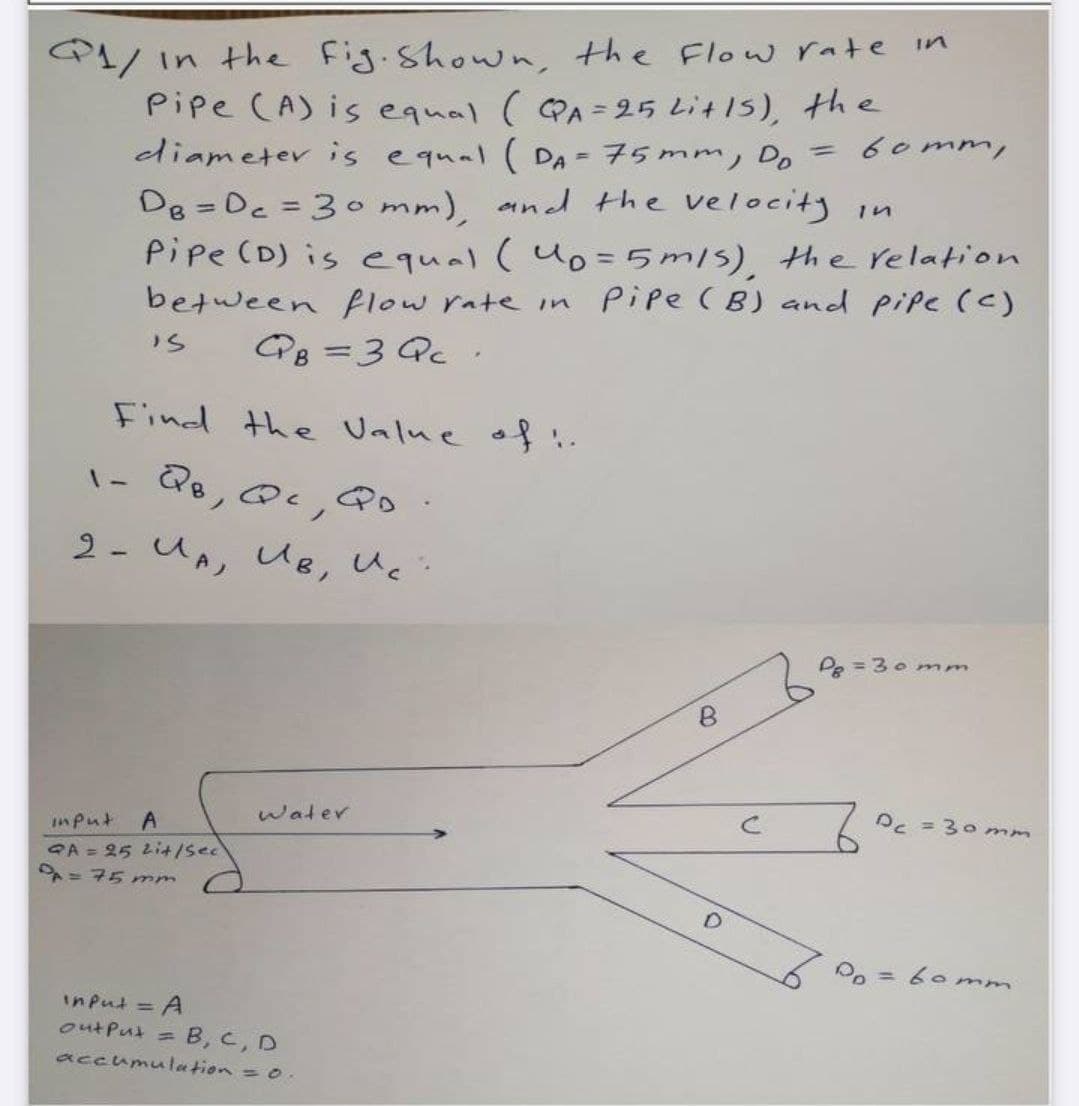 Q1/ in the Fig. Shown, the Flow rate in
Pipe (A) is equal ( QA = 25 Lit/s), the
diameter is equal ( DA = 75 mm, DD = 60 mm,
DB = DC = 30 mm), and the velocity in
Pipe (D) is equal ( uD = 5 m/s), the relation
between flow rate in Pipe (B) and pipe (c)
is QB = 3 Qc .
Find the Value of :.
1- QB, Qc, QD .
2 - uA, uB, uc :
DB = 30 mm
B
input A
water
C
Dc = 30 mm
QA = 25 Lit/sec
DA = 75 mm
D
DD = 60 mm
input = A
output = B, C, D
accumulation = 0.